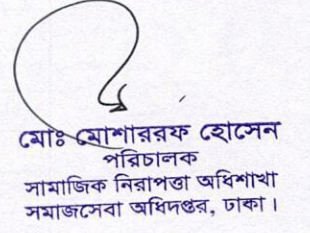 মোঃ মোশাররফ হোসেন
পরিচালক
সামাজিক নিরাপত্তা অধিশাখা
সমাজসেবা অধিদপ্তর, ঢাকা।